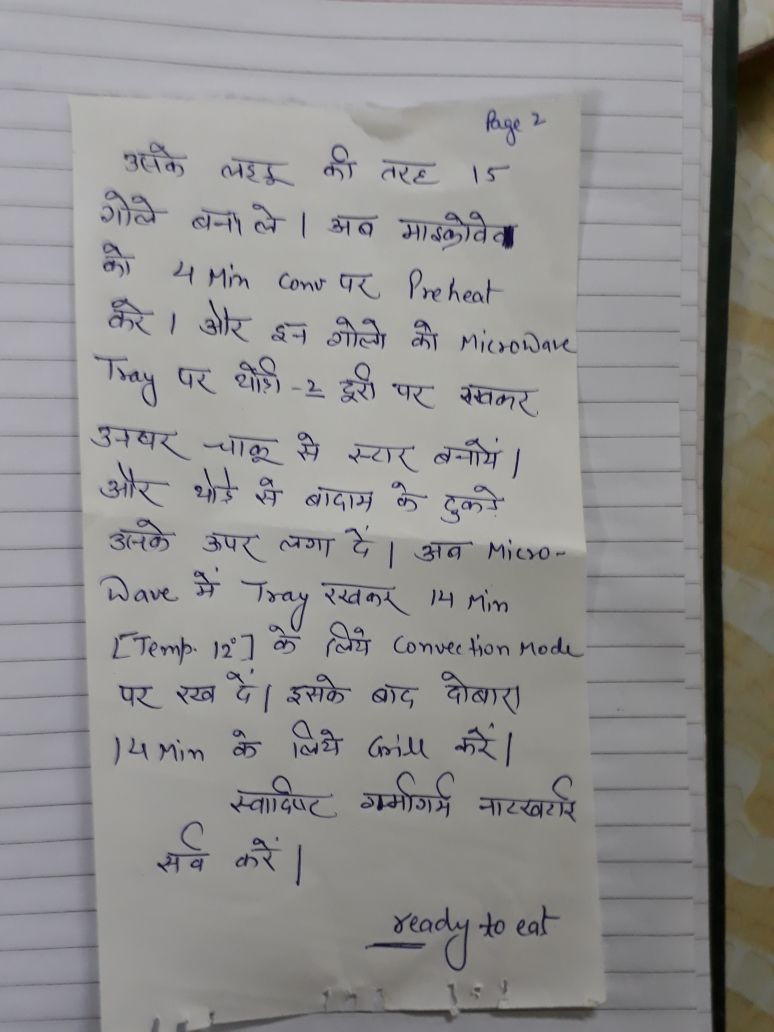 Page 2
उसके लड्डू की तरह 15
गोले बना ले । अब माइक्रोवेव
को 4 Min Conv पर Preheat
करे । और इन गोलो को MicroWave
Tray पर थोडी -2 दूरी पर रखकर
उनपर चाकू से स्टार बनायें |
और थोडे से बादाम के टुकडे
उनके ऊपर लगा दें | अब Micro-
Wave में Tray रखकर 14 Min
[Temp. 12°] के लिये Convection Mode
पर रख दें | इसके बाद दोबारा
14 Min के लिये Grill करें |
स्वादिष्ट गर्मागर्म नाटखटाई
सर्व करें |
ready to eat